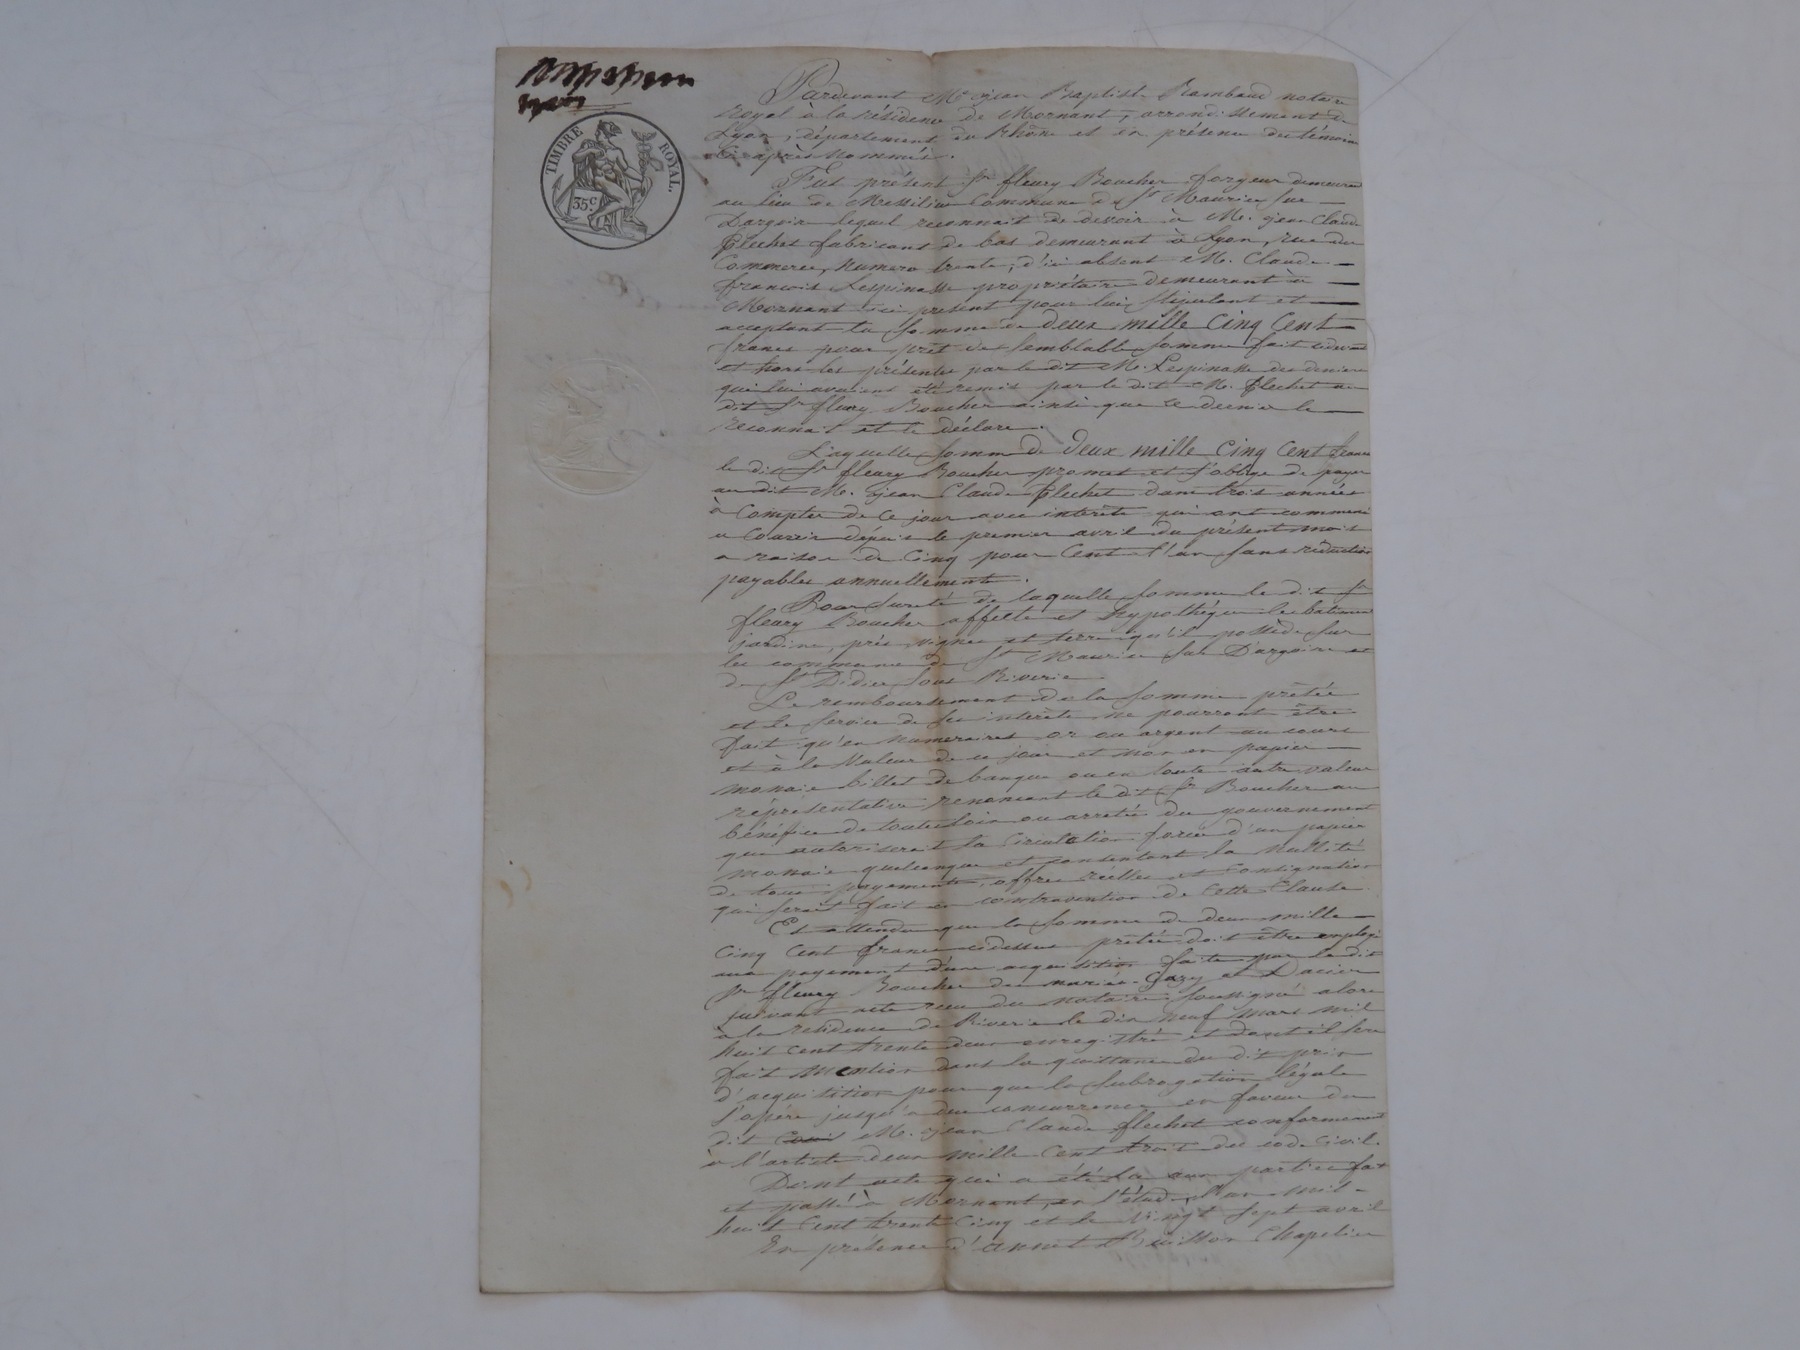 TIMBRE ROYAL.
35c.
Pardevant Me jean Baptiste Rambaud notaire
Royal à la résidence de Mornant, arrondissement de
Lyon, département du Rhône et en présence des témoins
ci après Nommés.
Fut présent Sr fleury Boucher forgeur demeurant
au lieu de Commune de St Maurice sur
Dargoire lequel reconnait de devoir à M. jean Claude
flechet fabricant de bas demeurant à Lyon, rue du
Commerce, Numero trente, d'ici absent M. Claude
françois Lespinasse propriétaire demeurant à
Mornant ici présent pour lui stipulant et
acceptant la somme de deux mille Cinq Cent
francs pour prêt de semblable somme fait
et hors les présentes par le dit M. Lespinasse des deniers
qui lui avaient été remis par le dit M. flechet au
dit Sr fleury Boucher ainsi que ce dernier le
reconnait et le déclare.
Laquelle somme de deux mille Cinq Cent francs
le dit Sr fleury Boucher promet et s'oblige de payer
au dit M. jean Claude flechet dans trois années
à Compter de ce jour avec intérêts qui ont commencé
a Courir dépuis le premier avril du présent mois
a raison de Cinq pour Cent l'an sans réduction
payables annuellement.
Pour sureté de laquelle somme le dit Sr
fleury Boucher affecte et hypothéque les batiments
jardins, prés, vignes et terres qu'il possède sur
les communes de St Maurice sur Dargoire et
de St Didier sous Riverie
Le remboursement de la somme prêtée
et le service de ses intérêts ne pourront être
fait qu'en numeraires or ou argent au cours
et à la Valeur de ce jour et non en papier
monaie billet de banque ou en toute autre valeur
réprésentative renoncant le dit Sr Boucher au
bénéfice de toutes lois ou arretés du gouvernement
qui autoriserait la Circulation forcée d'un papier
monaie quelconque et consentant la Nullité
de tous payements, offres réelles et Consignation
qui serait fait en contravention de Cette Clause
Et attendu que la somme de deux mille
Cinq Cent francs cidessus prêtée doit être employé
au payement d'une acquisition faite par le dit
Sr fleury Boucher des mariés Gary et Dacier
suivant acte recu du notaire soussigné alors
à la résidence de Riverie le dix neuf mars mil
huit cent trente deux enregistré et dont il sera
fait Mention dans la quittance du dit prix
d'acquisition pour que la subrogation légale
s'opére jusqu'a due concurrence en faveur du
dit M. jean Claude flechet conformement
à l'article deux mille Cent trois du code Civil.
Dont acte qui a été lu aux parties fait
et passé à Mornant, en l'étude, l'an Mil
huit Cent trente Cinq et le Vingt sept avril
En présence d'annet Chapelier